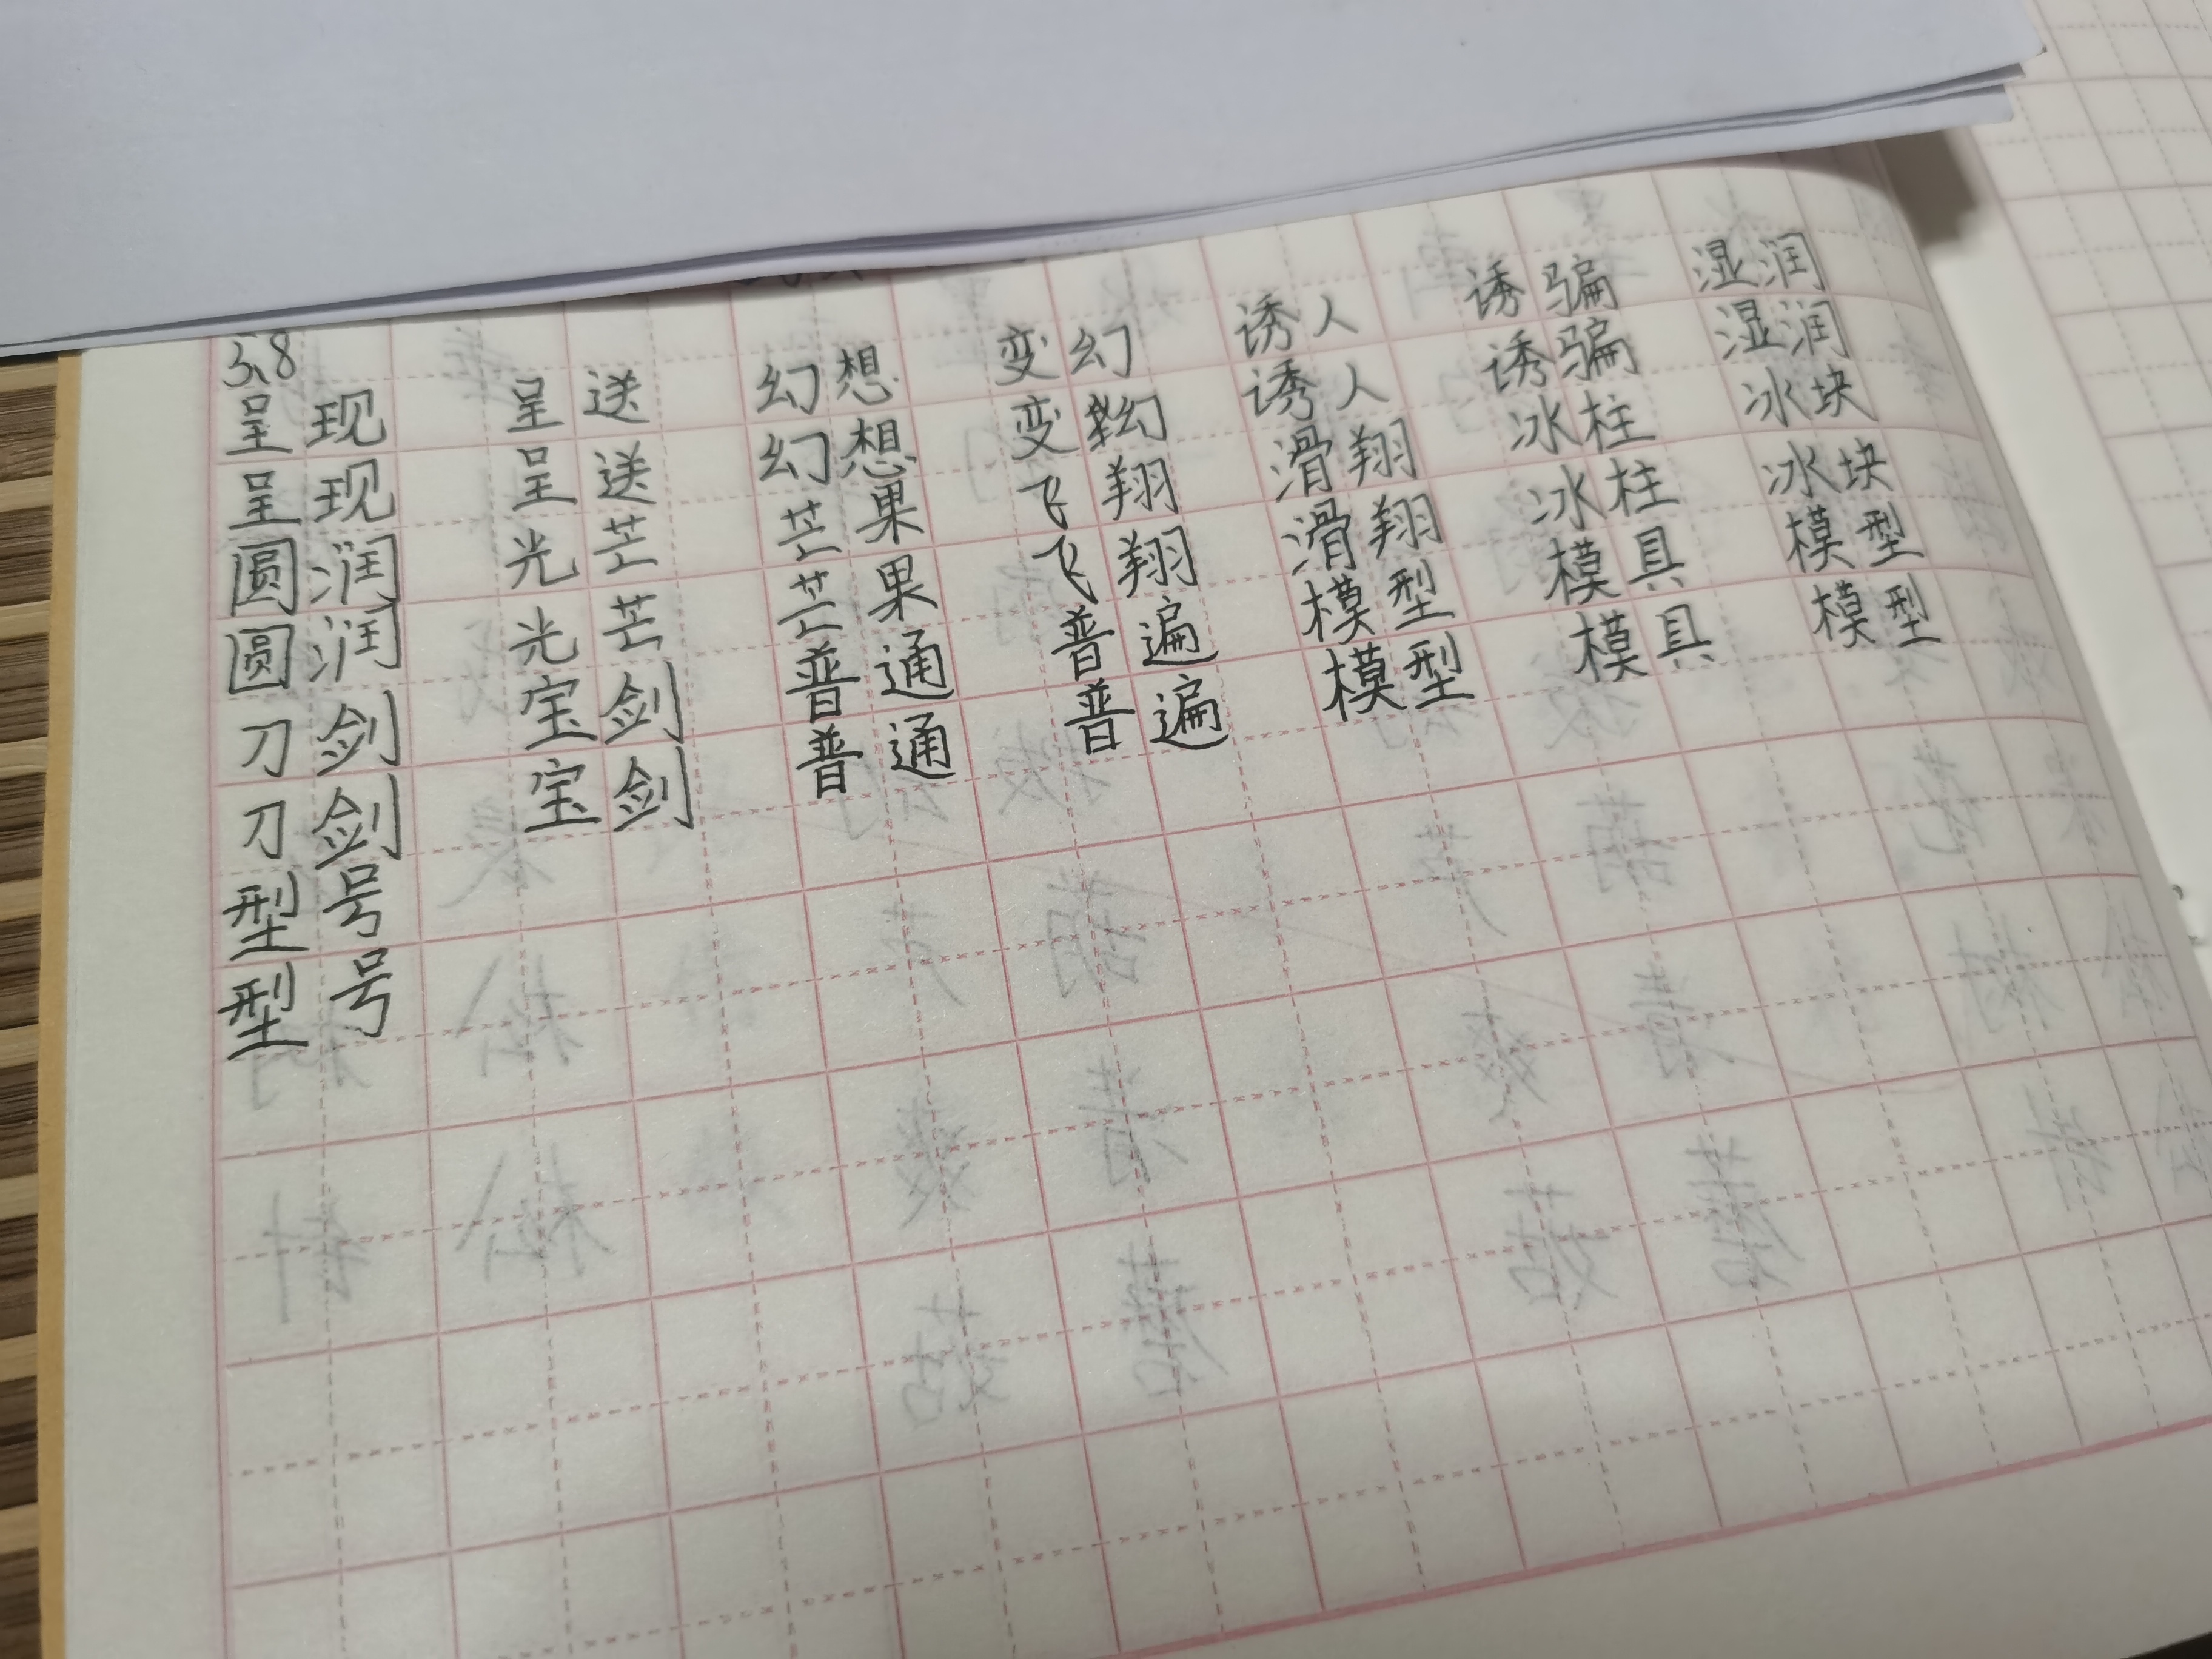 呈现 呈送 幻想 变幻 诱人 诱骗 湿润
呈现 呈送 幻想 变幻 诱人 诱骗 湿润
圆润 光芒 芒果 飞翔 滑翔 冰柱 冰块
圆润 光芒 芒果 飞翔 滑翔 冰柱 冰块
刀剑 宝剑 普通 普遍 模型 模具 模型
刀剑 宝剑 普通 普遍 模型 模具 模型
型号
型号